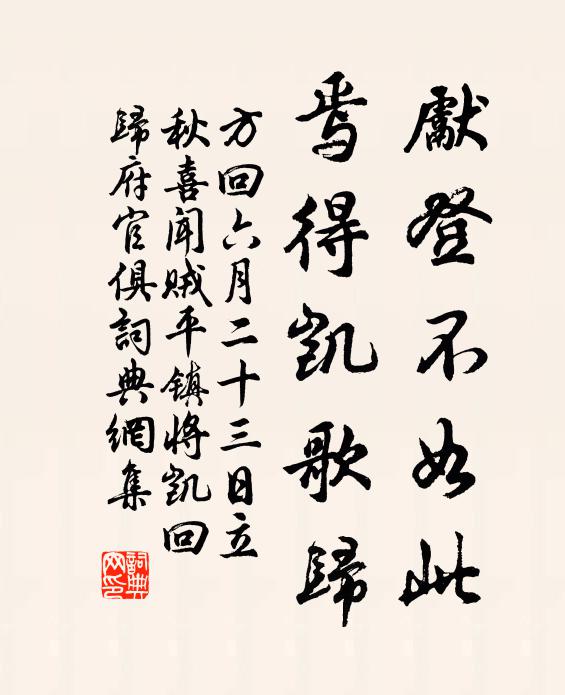 獻登不如此
焉得凱歌歸
方回六月二十三日立
秋喜聞賊平鎮將凱回
歸府官俱詞典網集
詞典
网印